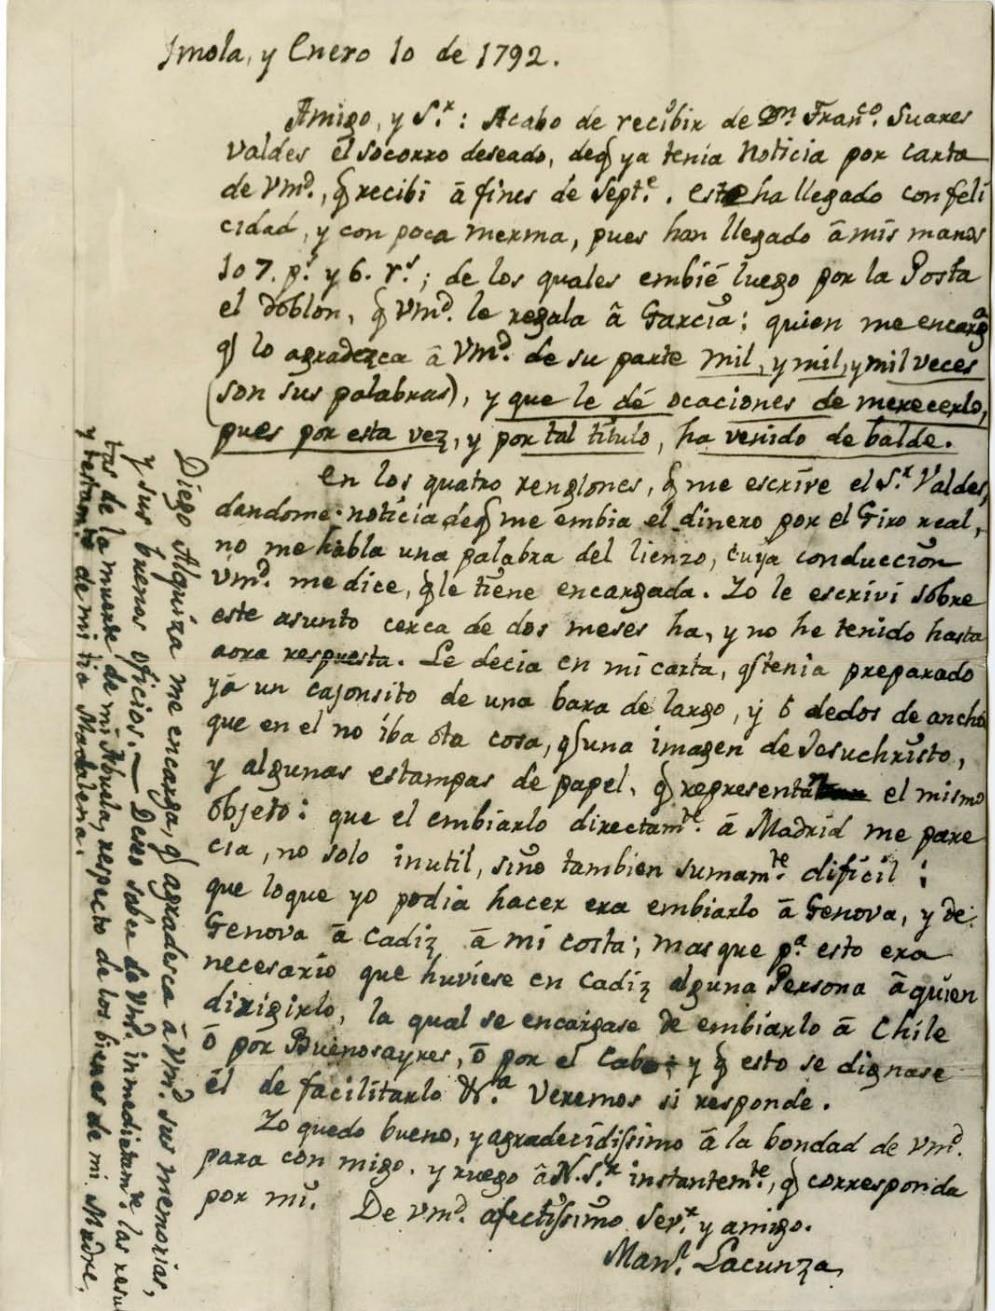 Imola, y Enero 10 de 1792.
Amigo, y S.r: Acabo de recibir de Dn. Franco. Suares
Valdes el socorro deseado, deq ya tenia noticia por carta
de Vmd., q recibi â fines de Septe. este ha llegado con feli
cidad, y con poca merma, pues han llegado â mis manos
107. ps. y 6. rs.; de los quales embié luego por la Posta
el doblon, q Vmd. le regala â Garcia: quien me encarga
q lo agradezca â Vmd. de su parte mil, y mil, y mil veces
(son sus palabras), y que le dé ocaciones de merecerlo,
pues por esta vez, y por tal titulo, ha venido de balde.
En los quatro renglones, q me escrive el S.r Valdes,
dandome noticia deq me embia el dinero por el Giro real,
no me habla una palabra del lienzo, cuya conduccion
Vmd. me dice, q le tiene encargada. Yo le escrivi sobre
este asunto cerca de dos meses ha, y no he tenido hasta
aora respuesta. Le decia en mi carta, q tenia preparado
yá un cajonsito de una bara de largo, y 6 dedos de ancho
que en el no iba ota cosa, q una imagen de Jesuchristo,
y algunas estampas de papel, q representan el mismo
objeto: que el embiarlo directamte. â Madrid me pare
cia, no solo inutil, sino tambien sumamte. dificil;
que loque yo podia hacer era embiarlo â Genova, y de
Genova â Cadiz â mi costa; mas que pa. esto era
necesario que huviese en Cadiz alguna Persona â quien
dirigirlo, la qual se encargase de embiarlo â Chile
ô por Buenosayres, ô por el Cabo; y q esto se dignase
él de facilitarlo &.a Veremos si responde.
Yo quedo bueno, y agradecidissimo â la bondad de Vmd.
para con migo. y ruego â N.S.r instantemte., q corresponda
por mi. De Vmd. afectissimo Ser.r y amigo.
Manl. Lacunza
Diego Alquiza me encarga, q agradesca â Vmd. sus memorias,
y sus buenos oficios.— Deseo saber de Vmd. inmediatamte. las resul
tas de la muerte de mi Abuela, respecto de los bienes de mi Madre,
y testamto. de mi tia Madalena.